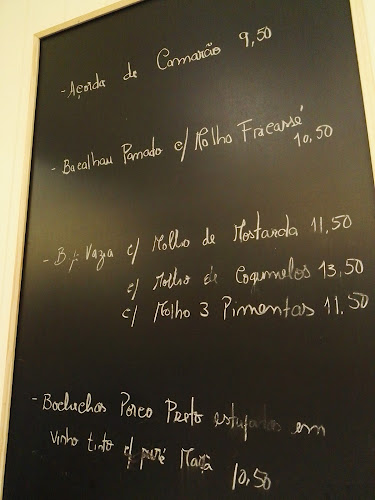 - Açorda de Camarão 9,50
- Bacalhau Panado c/ Molho Fracassé
10,50
- B. Vazia c/ Molho de Mostarda 11,50
c/ Molho de Cogumelos 13,50
c/ Molho 3 Pimentas 11,50
- Bochechas Porco Preto estufadas em
vinho tinto c/ puré Maçã
10,50